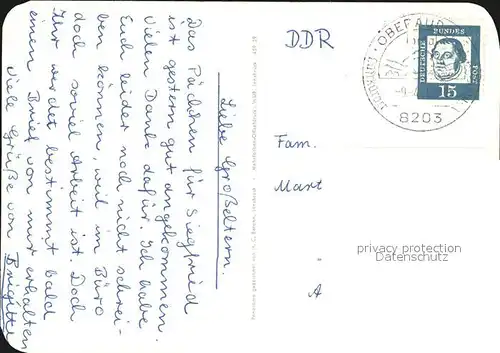 Liebe Großeltern.
Das Päckchen für Siegfried
ist gestern gut angekommen.
Vielen Dank dafür. Ich habe
Euch leider noch nicht schrei-
ben können, weil im Büro
doch soviel Arbeit ist. Doch
Ihr werdet bestimmt bald
einen Brief von mir erhalten
Viele Grüße von Brigitte
DDR
Fam.
Mart
A
OBERAUD
8203
DEUTSCHE BUNDES POST
15
privacy protection
Datenschutz